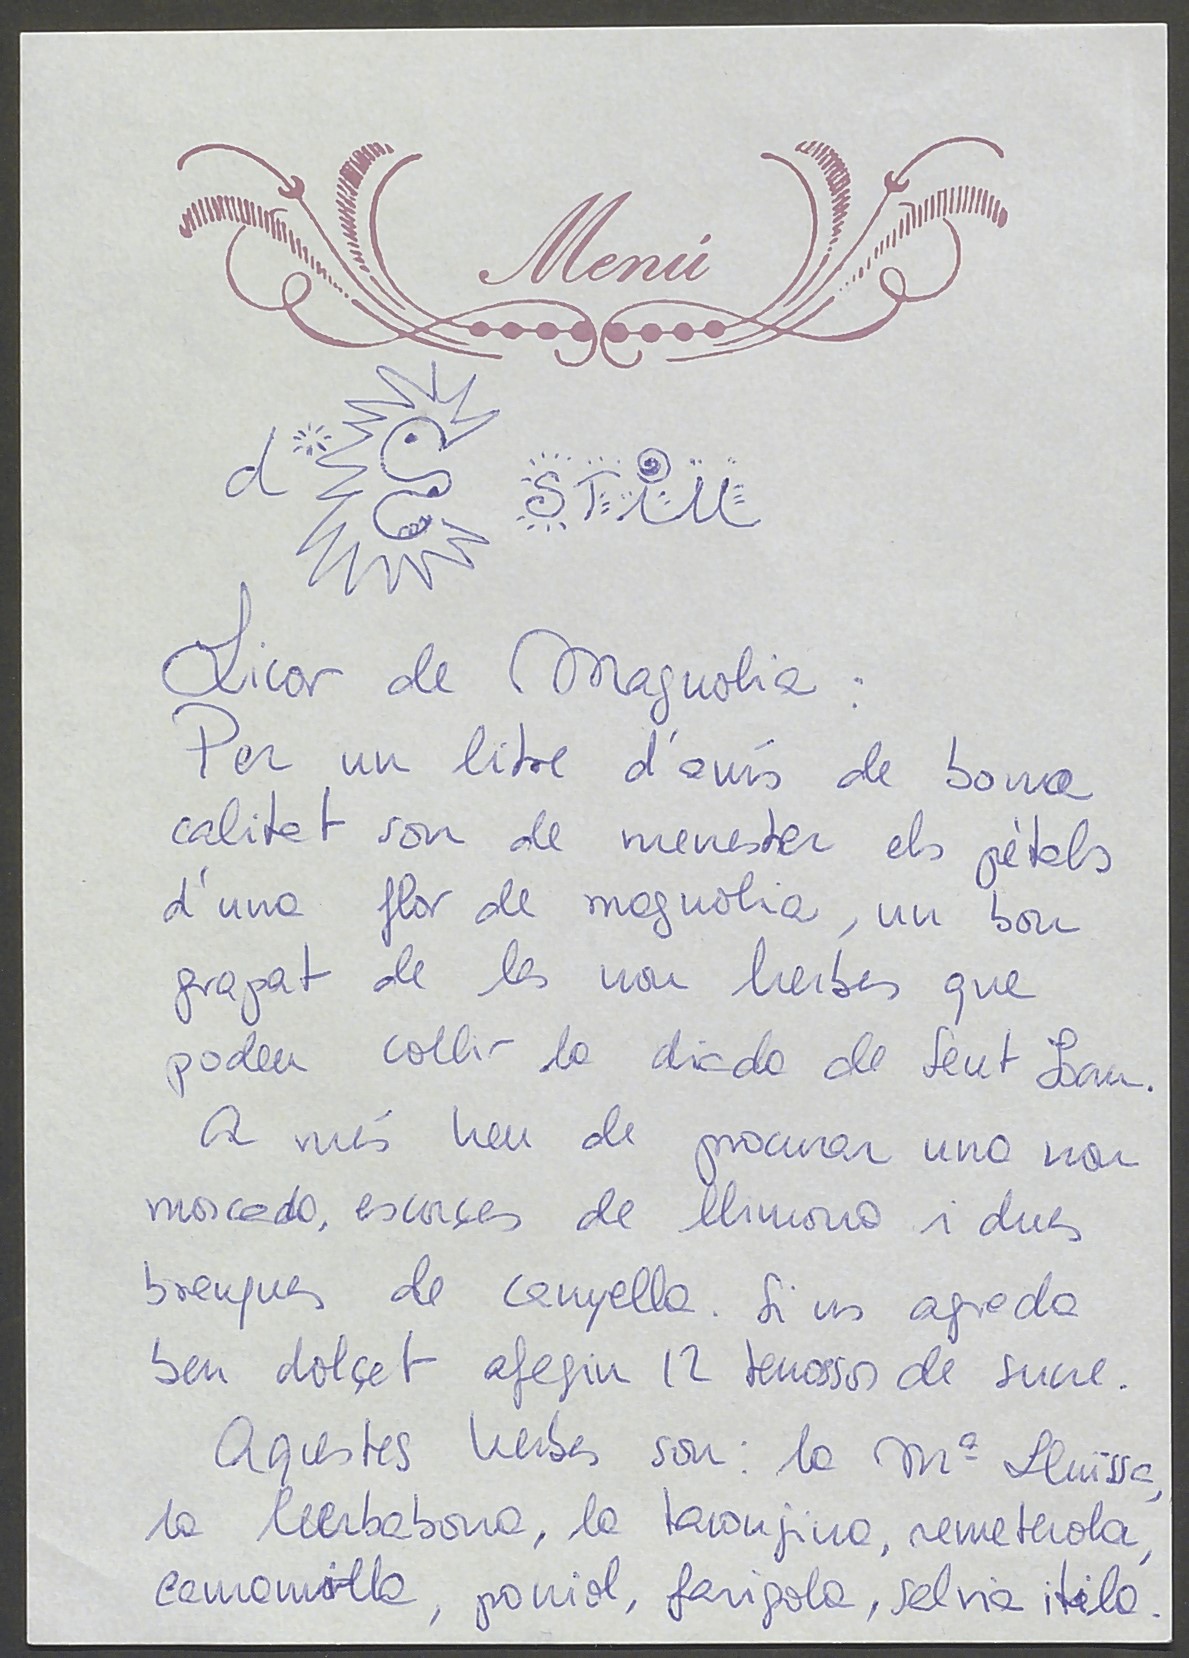 Menú
d'estiu
Licor de Magnolia:
Per un litre d'anís de bona
calitat son de menester els pètals
d'una flor de magnolia, un bon
grapat de les nou herbes que
poden collir la diada de Sant Joan.
A més heu de procurar una nou
moscada, escorçes de llimona i dues
branques de canyella. Si us agrada
ben dolçet afegiu 12 terrossos de sucre.
Aquestes herbes son: la Mª Lluïssa,
la herbabona, la tarongina, remeterola,
camamilla, poniol, farigola, salvia i tila.